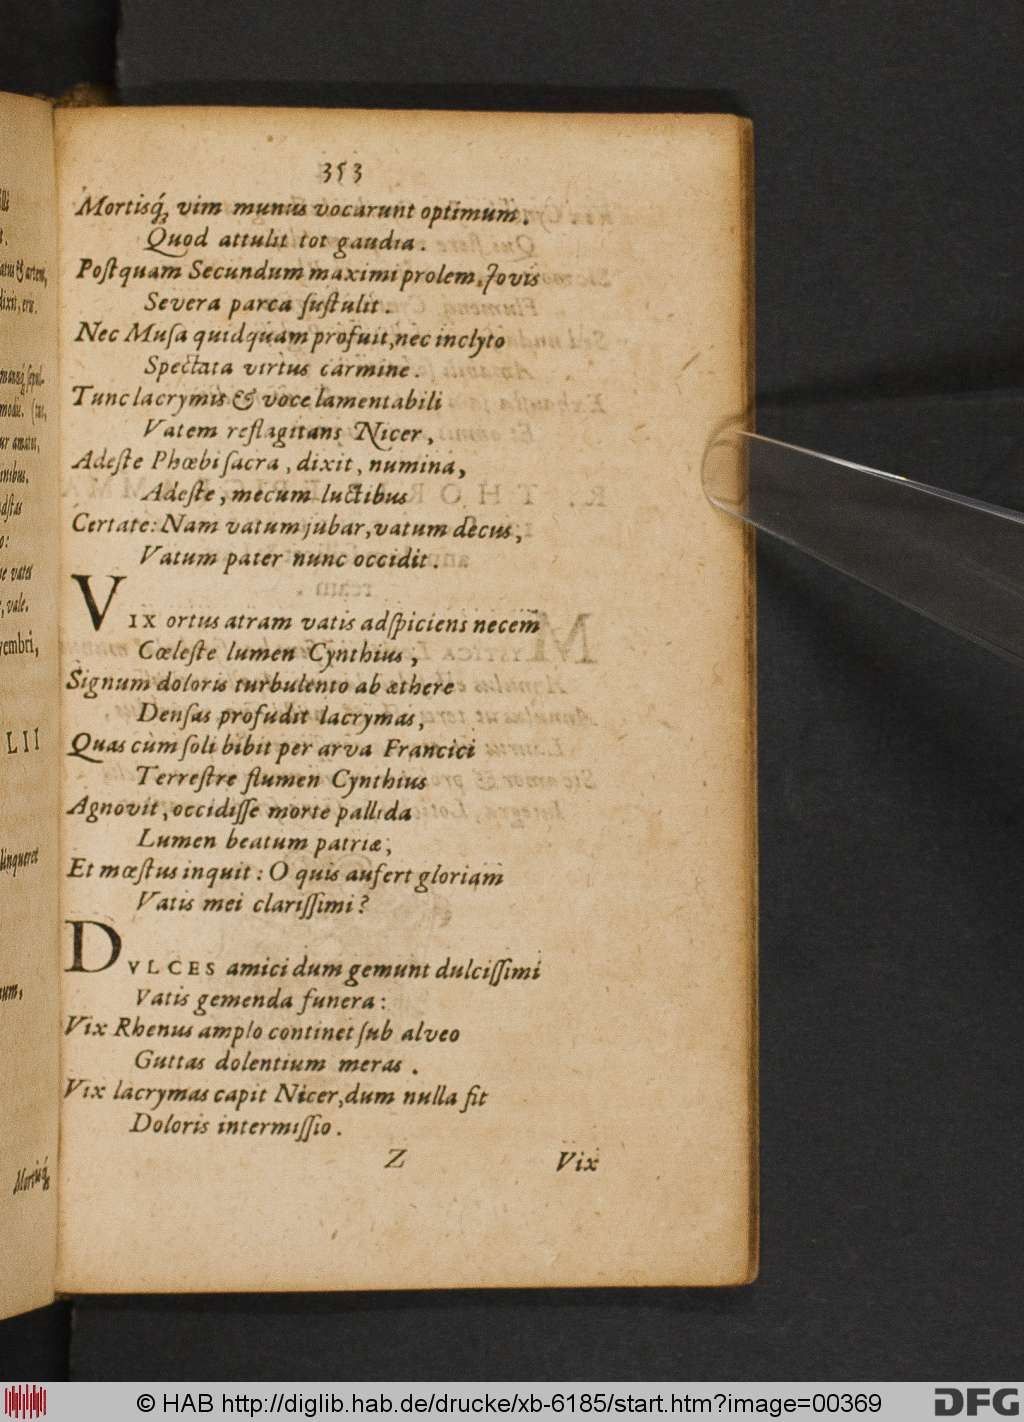 353
Mortisq́; vim munus vocarunt optimum.
Quod attulit tot gaudia.
Poſtquam Secundum maximi prolem Jovis
Severa parca ſuſtulit.
Nec Muſa quidquam profuit, nec inclyto
Spectata virtus carmine.
Tunc lacrymis & voce lamentabili
Vatem reflagitans Nicer,
Adeſte Phœbi ſacra, dixit, numina,
Adeſte, mecum luctibus
Certate: Nam vatum jubar, vatum decus,
Vatum pater nunc occidit.
VIX ortus atram vatis adſpiciens necem
Cœleſte lumen Cynthius,
Signum doloris turbulento ab æthere
Denſas profudit lacrymas,
Quas cùm ſoli bibit per arva Francici
Terreſtre flumen Cynthius
Agnovit, occidiſſe morte pallida
Lumen beatum patriæ,
Et mœſtus inquit: O quis aufert gloriam
Vatis mei clariſſimi?
DVLCES amici dum gemunt dulciſſimi
Vatis gemenda funera:
Vix Rhenus amplo continet ſub alveo
Guttas dolentium meras.
Vix lacrymas capit Nicer, dum nulla fit
Doloris intermiſſio.
Z Vix
© HAB http://diglib.hab.de/drucke/xb-6185/start.htm?image=00369
DFG